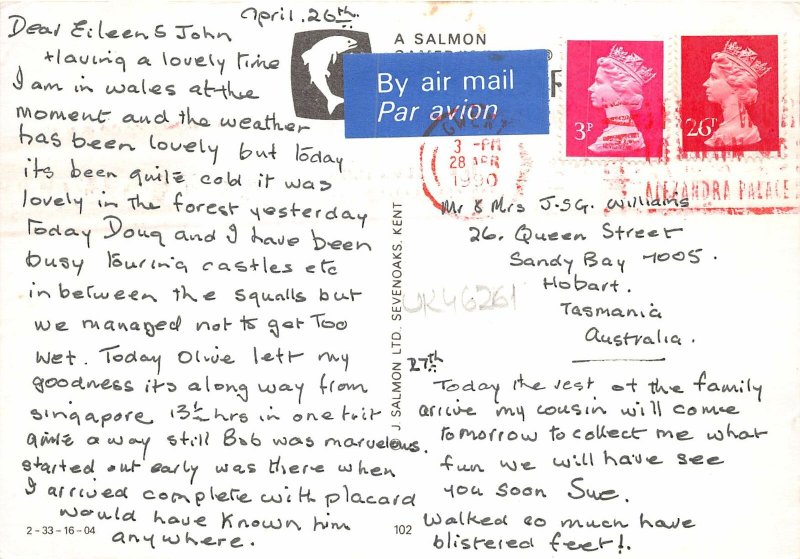 April. 26th.
Dear Eileen & John
Having a lovely time
I am in Wales at the
moment and the weather
has been lovely but Today
its been quite cold it was
lovely in the forest yesterday
Today Doug and I have been
busy Touring castles etc
in between the squalls but
we managed not to get Too
wet. Today Olive left my
goodness its along way from
singapore 13½ hrs in one
quite a way still Bob was marvelous.
started out early was there when
I arrived complete with placard
would have known him
anywhere.
2-33-16-04
A SALMON
®
By air mail
Par avion
3P
26P
3 - PM
28 APR
1990
ALEXANDRA PALACE
© J. SALMON LTD. SEVENOAKS. KENT
Mr & Mrs J.S.G. Williams
26. Queen Street
Sandy Bay 7005.
Hobart.
Tasmania
Australia.
UK46261
27th
Today the rest of the family
arrive my cousin will come
Tomorrow to collect me what
fun we will have see
you soon Sue.
Walked so much have
blistered feet!.
102